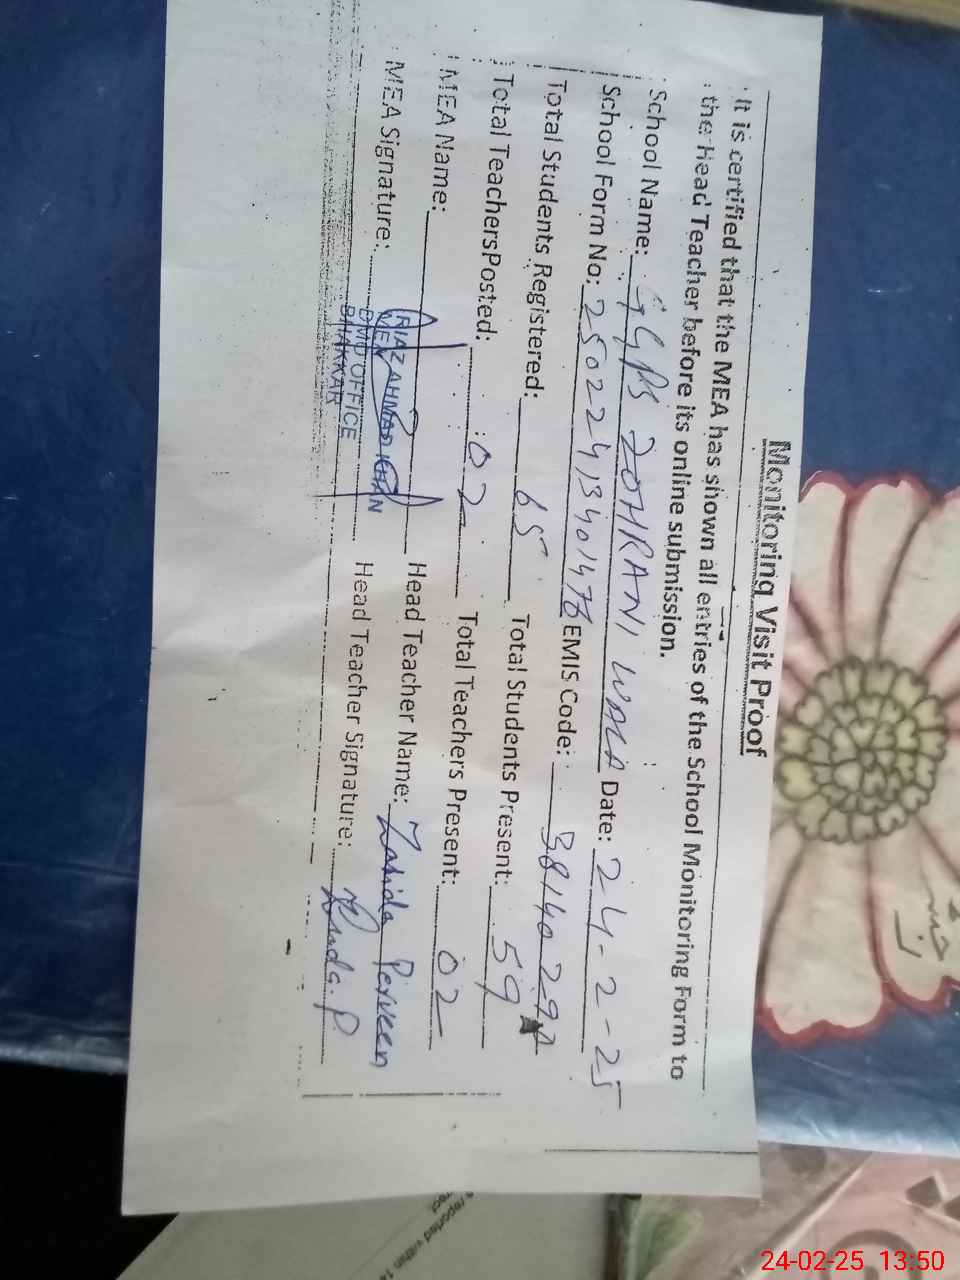 Monitoring Visit Proof
It is certified that the MEA has shown all entries of the School Monitoring Form to
the Head Teacher before its online submission.
School Name: GGPS ZOHRANI WALA Date: 24-2-25
School Form No: EMIS Code:
Total Students Registered: 65 Total Students Present: 59
Total TeachersPosted: 02 Total Teachers Present: 02
MEA Name: Head Teacher Name: Zahida Perveen
MEA Signature: Head Teacher Signature:
RIAZ AHMAD KHAN
MEA
DMO OFFICE
BHAKKAR
24-02-25 13:50